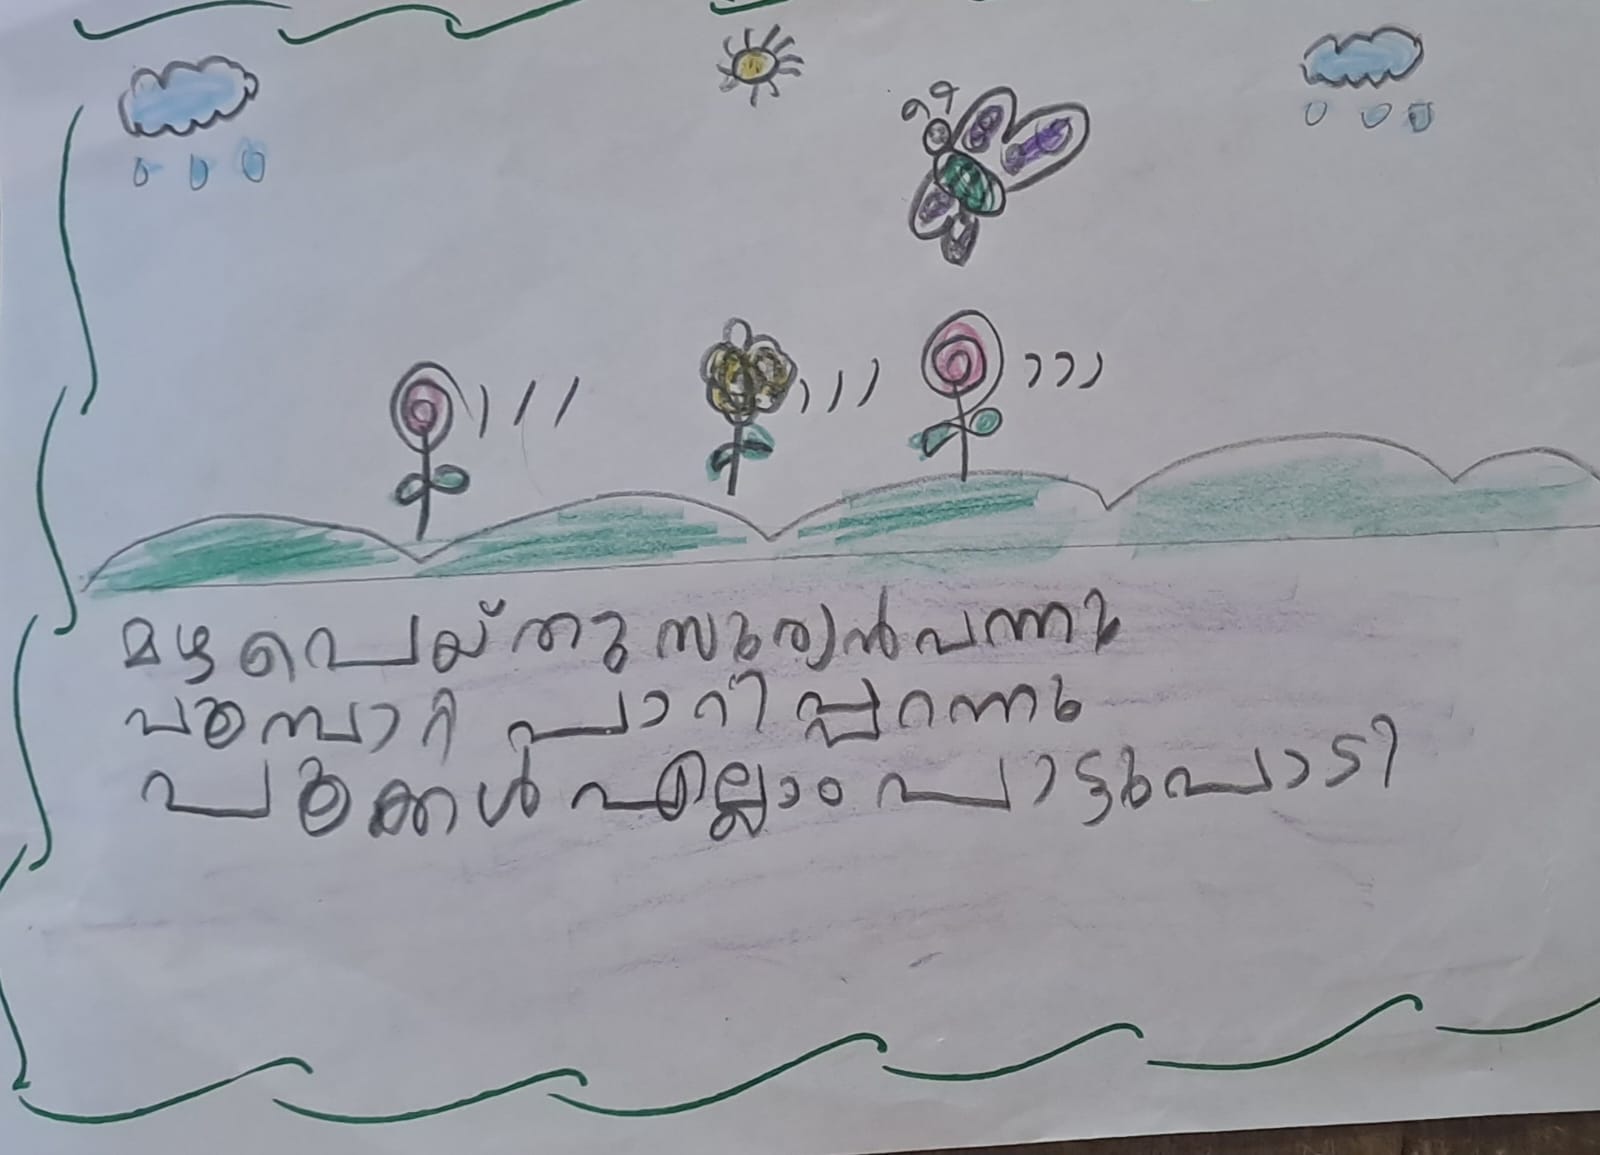 മഴ പെയ്തു സുര്യൻ വന്നു
പൂമ്പാറ്റ പാറിപ്പറന്നു
പൂക്കൾ എല്ലാം പാട്ടുപാടി